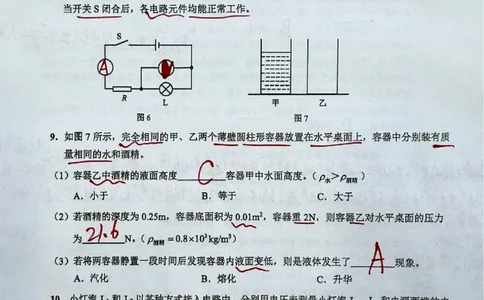 当开关 S 闭合后，各电路元件均能正常工作。
S
A
V
R
L
甲
乙
图6
图7
9. 如图 7 所示，完全相同的甲、乙两个薄壁圆柱形容器放置在水平桌面上，容器中分别装有质
量相同的水和酒精。
（1）容器乙中酒精的液面高度 C 容器甲中水面高度。（ρ水＞ρ酒精）
A．小于
B．等于
C．大于
（2）若酒精的深度为 0.25m，容器底面积为 0.01m²，容器重 2N，则容器乙对水平桌面的压力
为 21.6 N。（ρ酒精＝0.8×10³kg/m³）
（3）若将两容器静置一段时间后发现容器内液面变低，则是液体发生了 A 现象。
A．汽化
B．熔化
C．升华